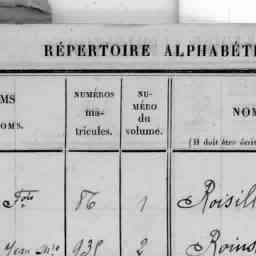 RÉPERTOIRE ALPHABÉTI
MS
NOMS.
NUMÉROS
ma-
tricules.
NU-
MÉRO
du
volume.
NOM
(Il doit être écrit
Fois 86 1 Roisill
Jean 935 2 Roins